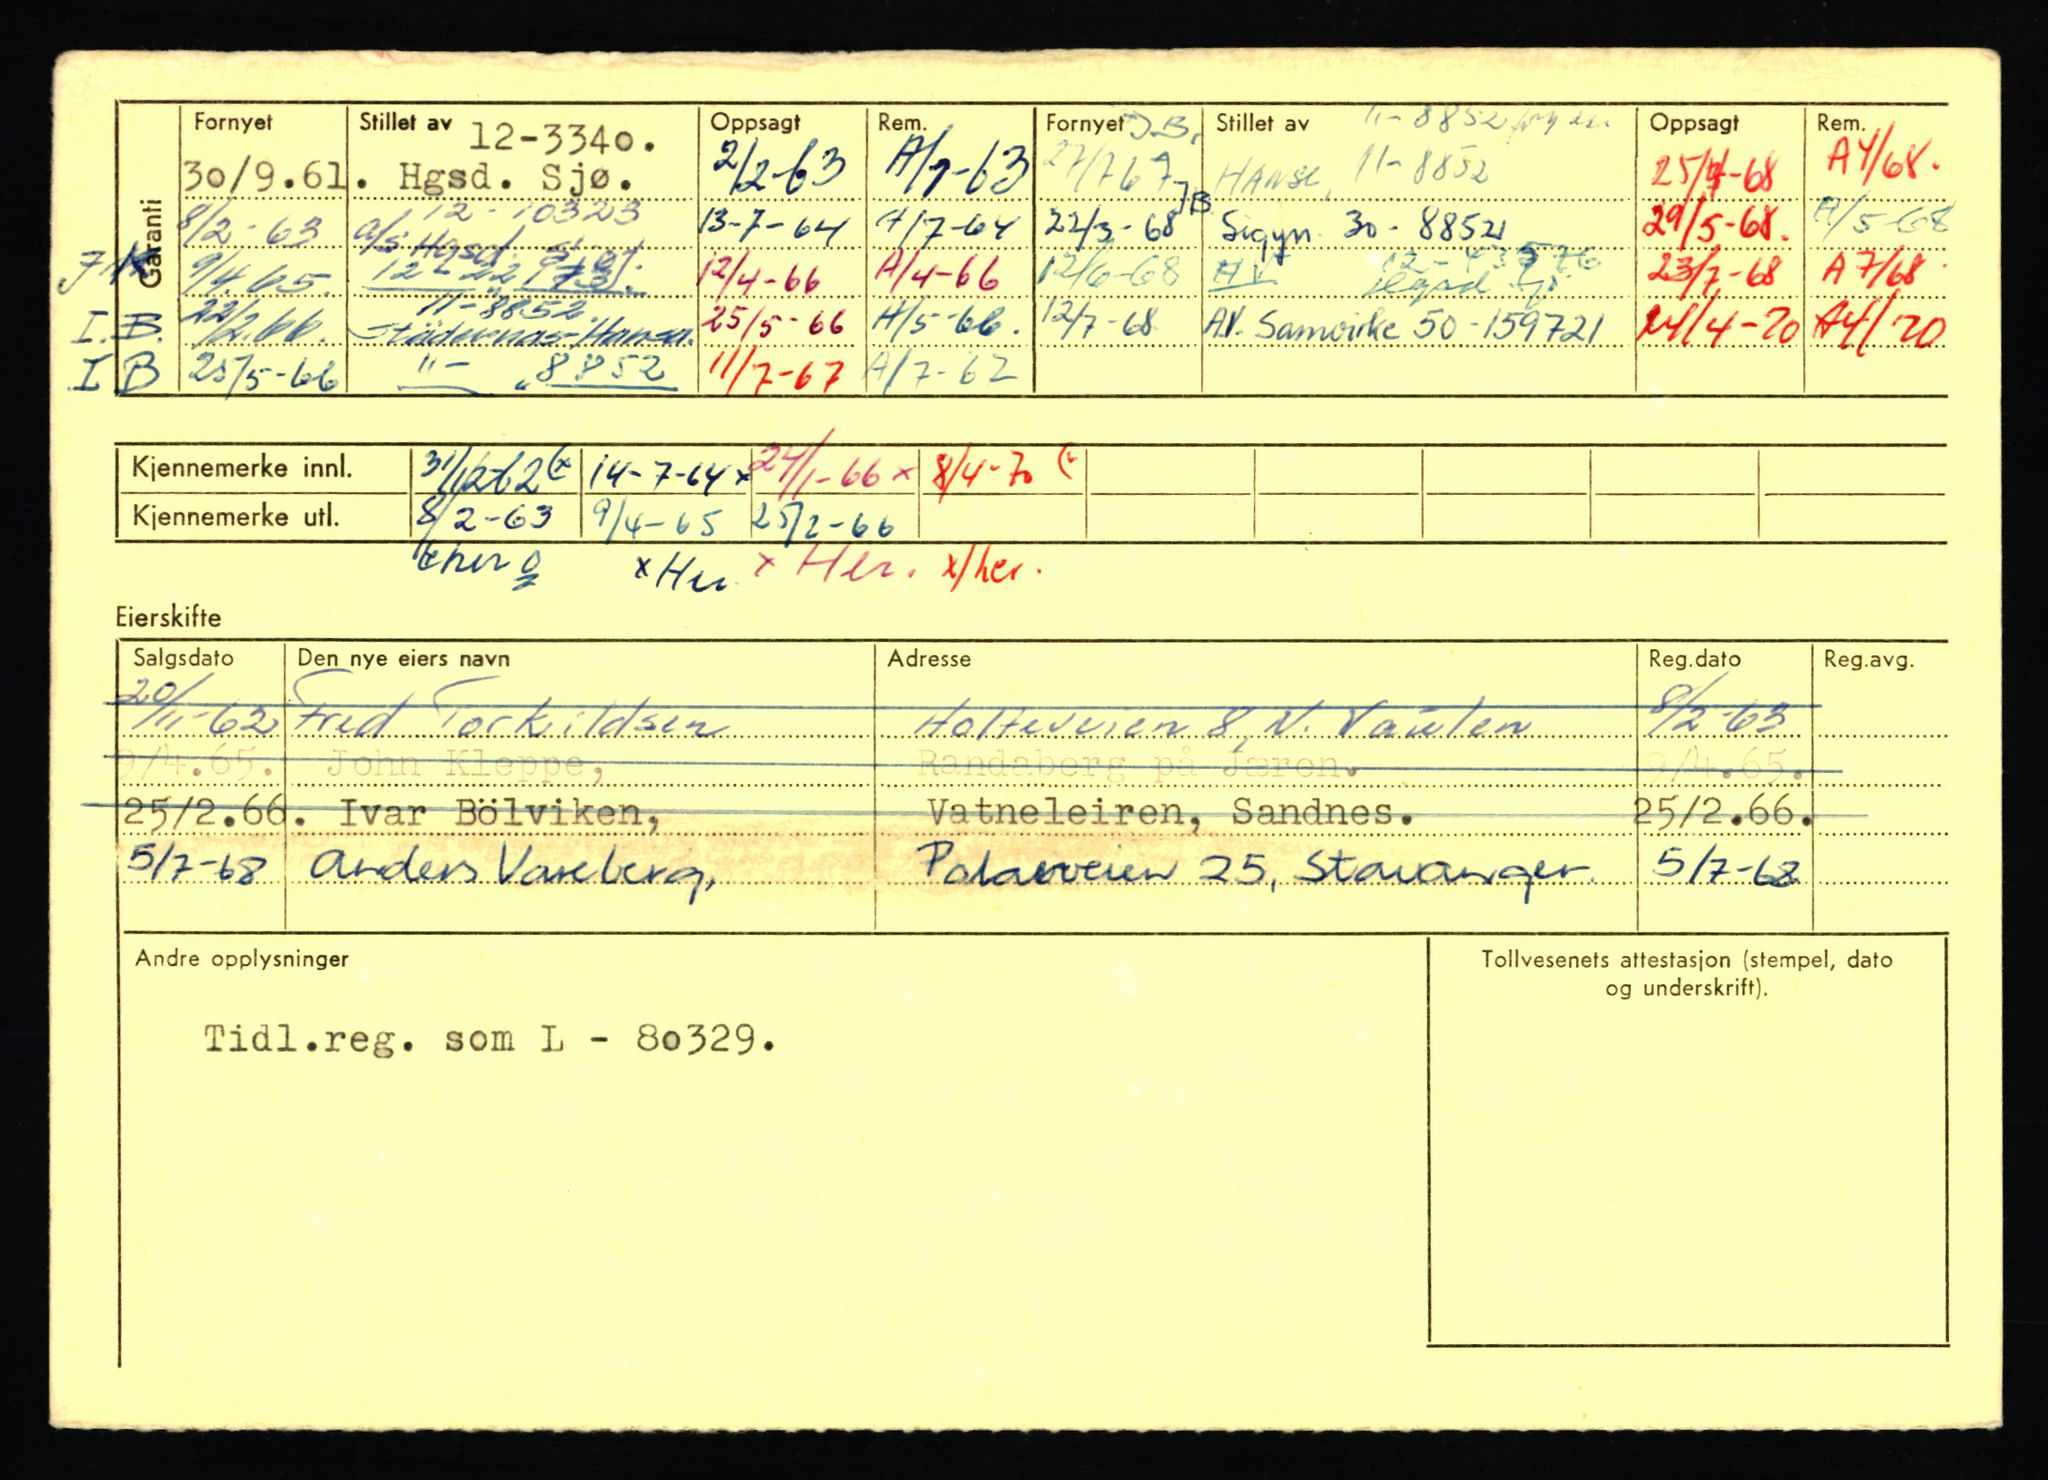 Garanti
Fornyet Stillet av Oppsagt Rem. Fornyet J.B. Stillet av 11-8852 Oppsagt Rem.
12-3340.
30/9.61. Hgsd. Sjø. 2/2-63 A/1-63 27/7 67 Hanse, 11-8852 25/4-68 A4/68.
12-10323
8/2-63 a/s Hgsd. Sjø. 13-7-64 A/7-64 22/3-68 JB Sigyn 30-88521 29/5-68. A/5-68
J.K. 9/4.65. 12-221973. 12/4-66 A/4-66 12/6-68 A.V. 12-433576 Hgsd Sjø 23/7-68 A7/68
11-8852.
I.B. 22/2.66. Städernas-Hansa. 25/5-66 A/5-66. 12/7-68. A.V. Samvirke 50-159721 14/4-70 A4/70
I B 25/5-66 11- „ 8852 11/7-67 A/7-67
Kjennemerke innl. 31/12-62 (x 14-7-64 x 24/1-66 x 8/4-70 (x
Kjennemerke utl. 8/2-63 9/4-65 25/2-66
x Her. x Her. x/her.
Eierskifte
Salgsdato Den nye eiers navn Adresse Reg.dato Reg.avg.
20/11-62 Fred Torkildsen Holteveien 8, N. Vaulen 8/2-63
9/4.65. John Kleppe, Randaberg på Jæren. 9/4.65.
25/2.66. Ivar Bölviken, Vatneleiren, Sandnes. 25/2.66.
5/7-68 Anders Vareberg, Polarveien 25, Stavanger. 5/7-68
Andre opplysninger
Tollvesenets attestasjon (stempel, dato
og underskrift).
Tidl.reg. som L - 80329.